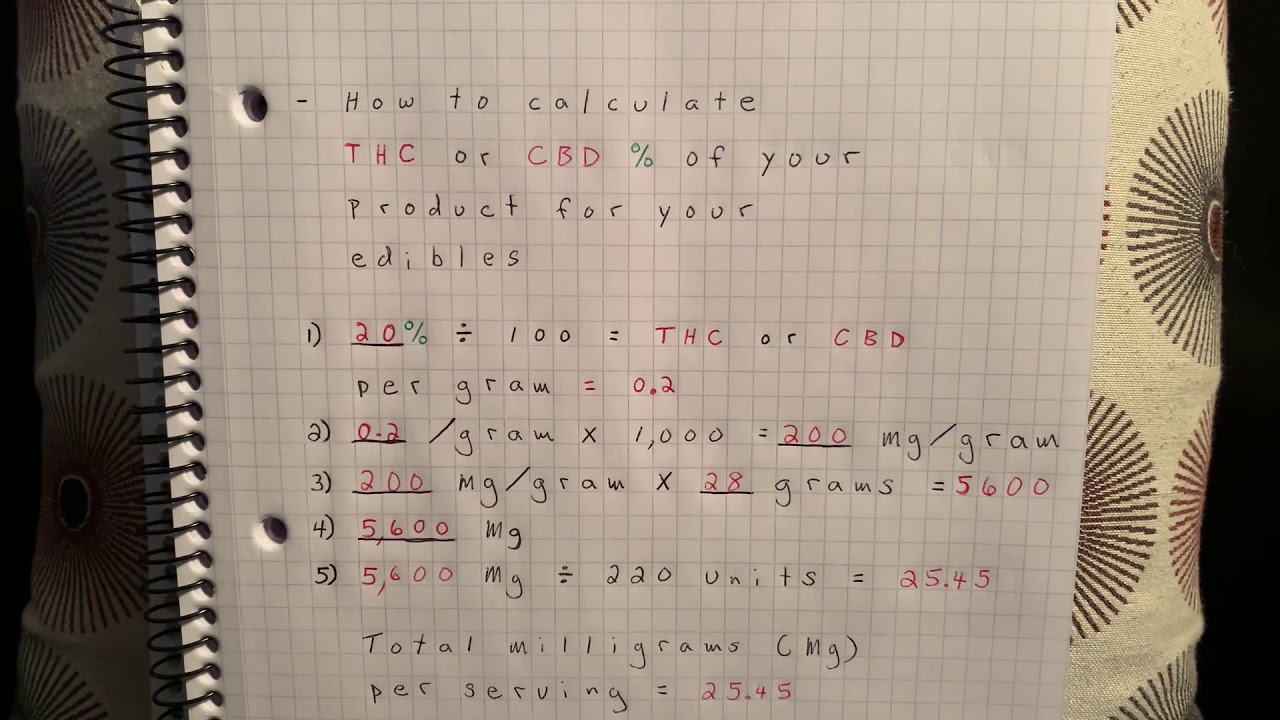 - How to calculate
THC or CBD % of your
product for your
edibles
1) 20% ÷ 100 = THC or CBD
per gram = 0.2
2) 0.2 /gram x 1,000 = 200 mg/gram
3) 200 mg/gram x 28 grams = 5600
4) 5,600 mg
5) 5,600 mg ÷ 220 units = 25.45
Total milligrams (mg)
per serving = 25.45